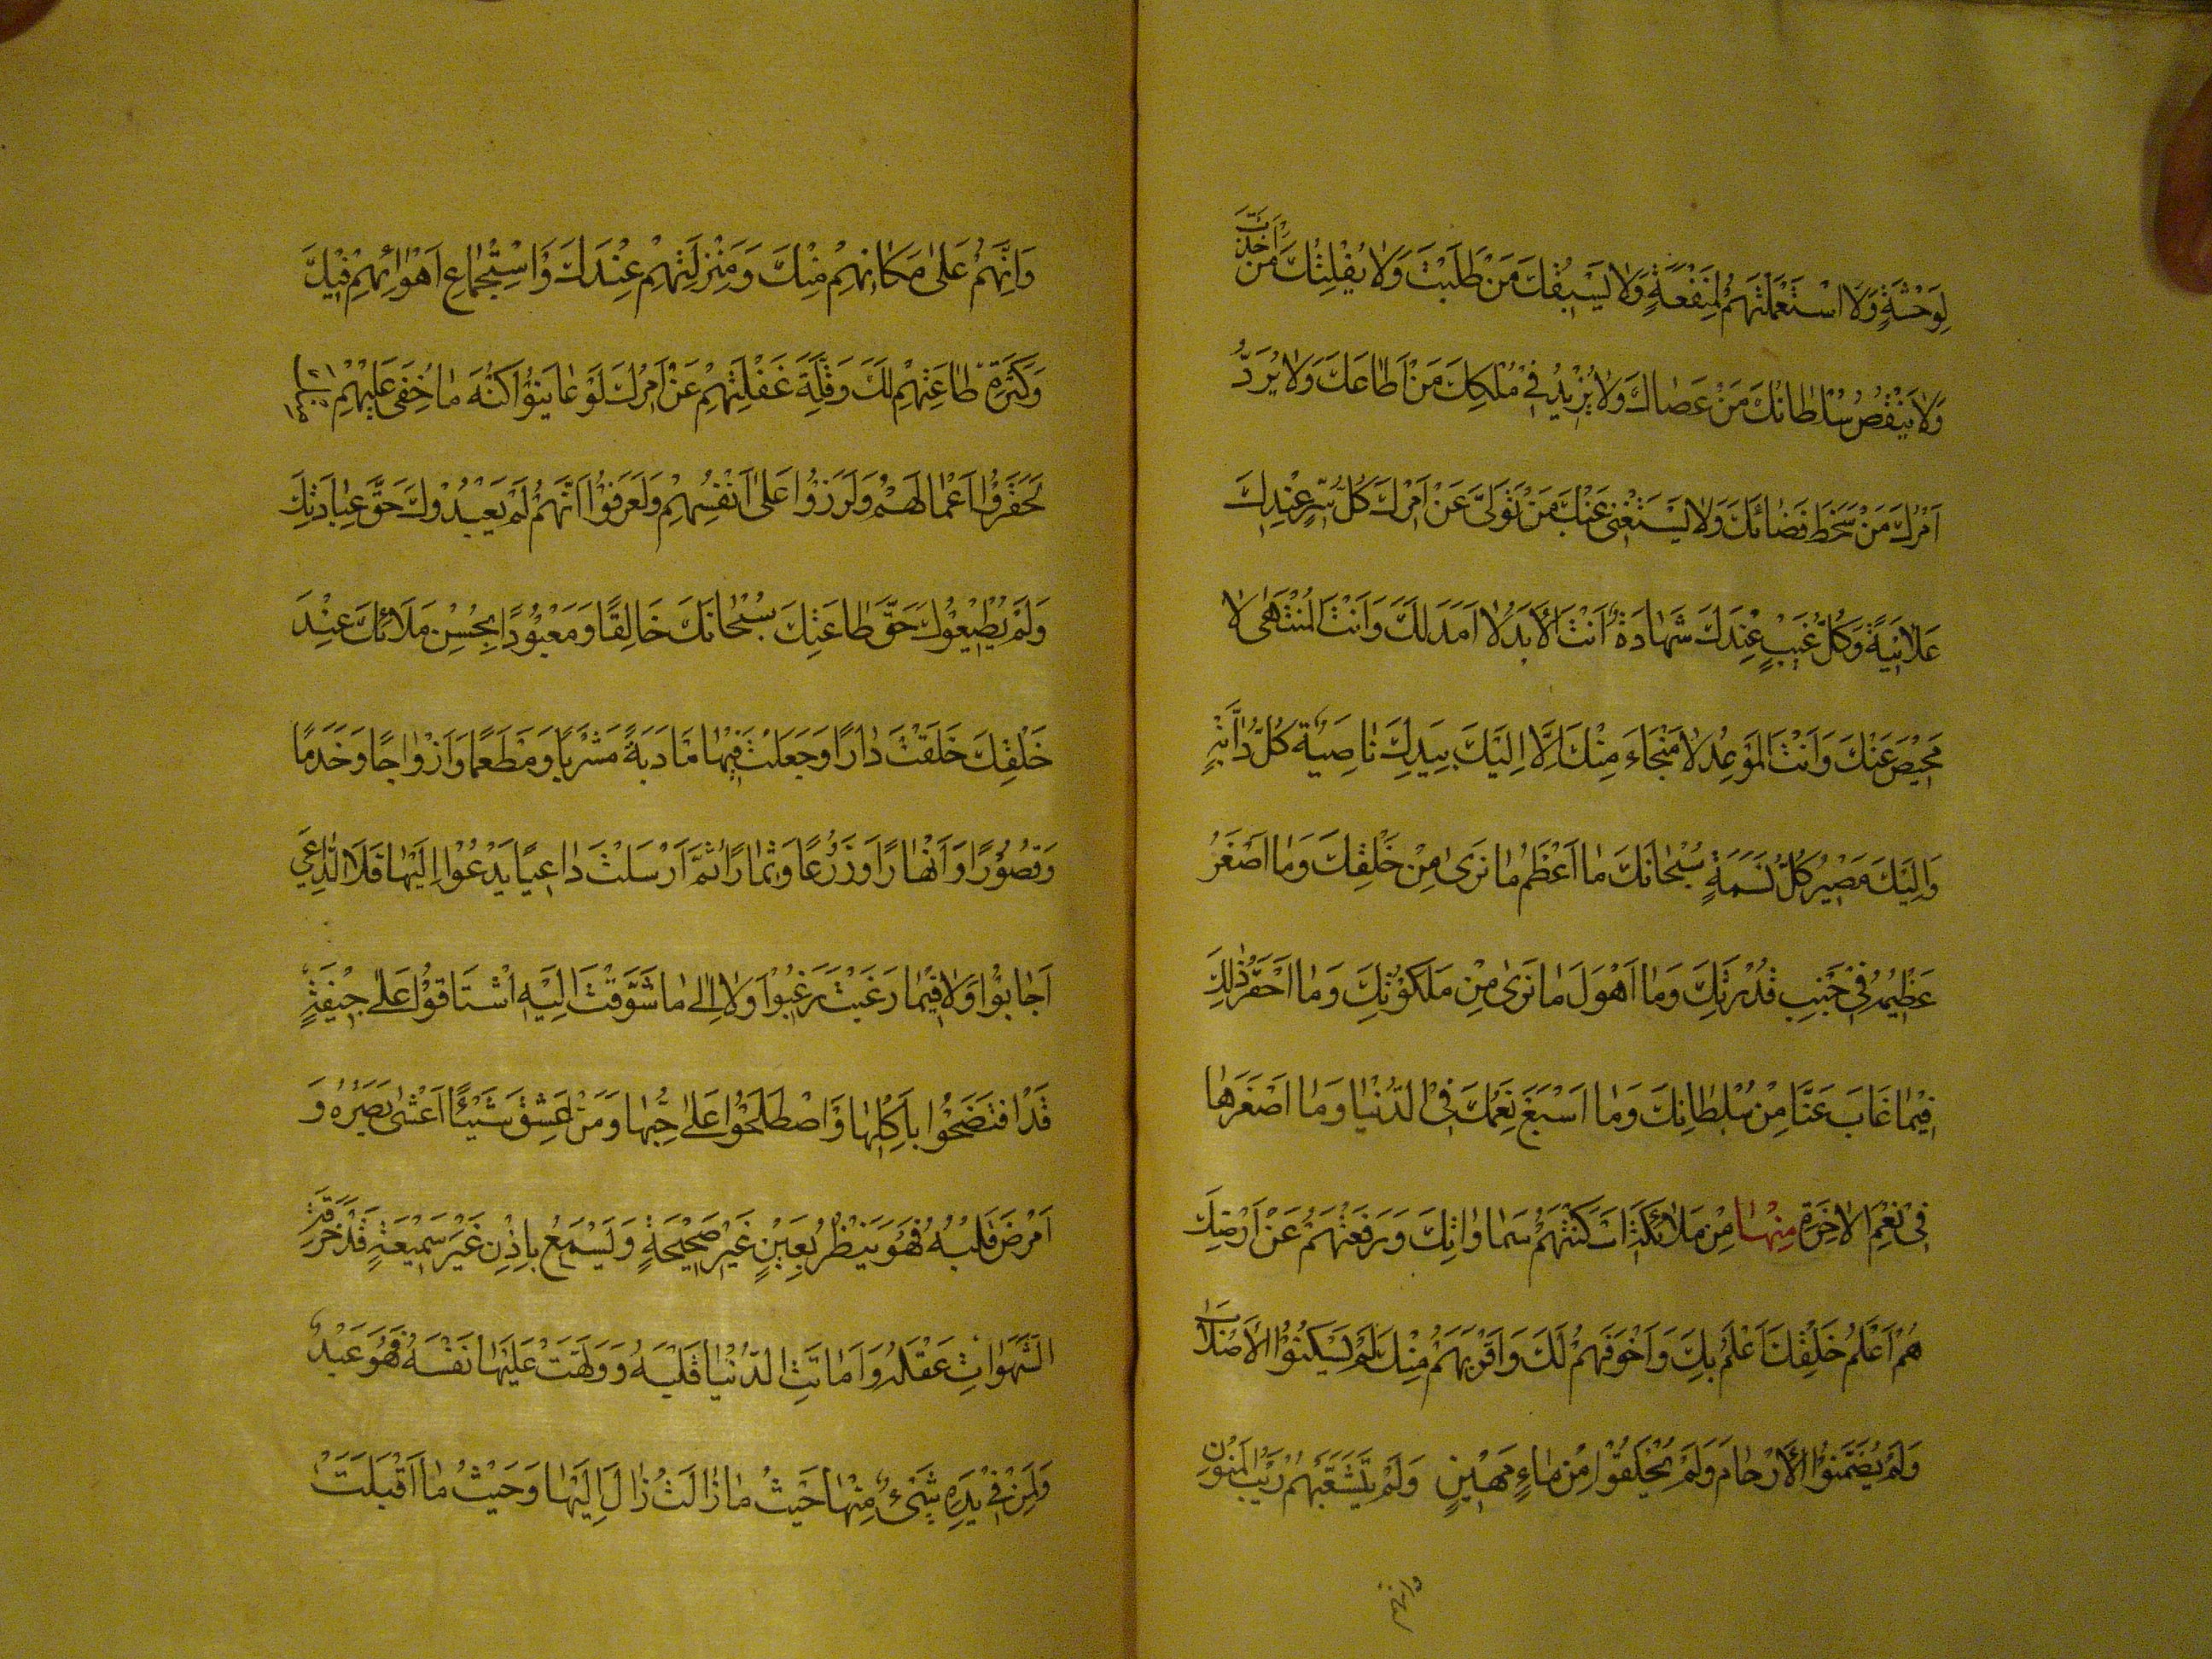 لِوَحْشَةٍ وَلَا اسْتَعْمَلْتَهُمْ لِمَنْفَعَةٍ وَلَا يَسْبِقُكَ مَنْ طَلَبْتَ وَلَا يُفْلِتُكَ مَنْ اَخَذْتَ
وَلَا يَنْقُصُ سُلْطَانَكَ مَنْ عَصَاكَ وَلَا يَزِيْدُ فِي مُلْكِكَ مَنْ اَطَاعَكَ وَلَا يَرُدُّ
اَمْرَكَ مَنْ سَخَطَ قَضَائَكَ وَلَا يَسْتَغْنِي عَنْكَ مَنْ تَوَلَّى عَنْ اَمْرِكَ كُلُّ سِرٍّ عِنْدَكَ
عَلَانِيَةٌ وَكُلُّ غَيْبٍ عِنْدَكَ شَهَادَةٌ اَنْتَ الْأَبَدُ لَا اَمَدَ لَكَ وَاَنْتَ الْمُنْتَهَى لَا
مَحِيْصَ عَنْكَ وَاَنْتَ الْمَوْعِدُ لَا مَنْجَاءَ مِنْكَ اِلَّا اِلَيْكَ بِيَدِكَ نَاصِيَةُ كُلِّ دَابَّةٍ
وَاِلَيْكَ مَصِيْرُ كُلِّ نَسَمَةٍ سُبْحَانَكَ مَا اَعْظَمَ مَا نَرَى مِنْ خَلْقِكَ وَمَا اَصْغَرَ
عَظِيْمَهُ فِي جَنْبِ قُدْرَتِكَ وَمَا اَهْوَلَ مَا نَرَى مِنْ مَلَكُوْتِكَ وَمَا اَحْقَرَ ذٰلِكَ
فِيْمَا غَابَ عَنَّا مِنْ سُلْطَانِكَ وَمَا اَسْبَغَ نِعَمَكَ فِي الدُّنْيَا وَمَا اَصْغَرَهَا
فِي نِعَمِ الْاٰخِرَةِ مِنْهَا مِنْ مَلَائِكَةٍ اَسْكَنْتَهُمْ سَمَاوَاتِكَ وَرَفَعْتَهُمْ عَنْ اَرْضِكَ
هُمْ اَعْلَمُ خَلْقِكَ بِكَ وَاَخْوَفُهُمْ لَكَ وَاَقْرَبُهُمْ مِنْكَ لَمْ يَسْكُنُوْا الْأَصْلَابَ
وَلَمْ يُضَمَّنُوْا الْأَرْحَامَ وَلَمْ يُخْلَقُوْا مِنْ مَاءٍ مَهِيْنٍ وَلَمْ يَتَشَعَّبْهُمْ رَيْبُ الْمَنُوْنِ
وانهم
وَاِنَّهُمْ عَلٰى مَكَانِهِمْ مِنْكَ وَمَنْزِلَتِهِمْ عِنْدَكَ وَاسْتِجْمَاعِ اَهْوَائِهِمْ فِيْكَ
وَكَثْرَةِ طَاعَتِهِمْ لَكَ وَقِلَّةِ غَفْلَتِهِمْ عَنْ اَمْرِكَ لَوْ عَايَنُوْا كُنْهَ مَا خَفِيَ عَلَيْهِمْ مِنْكَ
لَحَقَّرُوْا اَعْمَالَهُمْ وَلَزَرَوْا عَلٰى اَنْفُسِهِمْ وَلَعَرَفُوْا اَنَّهُمْ لَمْ يَعْبُدُوْكَ حَقَّ عِبَادَتِكَ
وَلَمْ يُطِيْعُوْكَ حَقَّ طَاعَتِكَ سُبْحَانَكَ خَالِقًا وَمَعْبُوْدًا بِحُسْنِ بَلَائِكَ عِنْدَ
خَلْقِكَ خَلَقْتَ دَارًا وَجَعَلْتَ فِيْهَا مَادَبَةً مَشْرَبًا وَمَطْعَمًا وَاَزْوَاجًا وَخَدَمًا
وَقُصُوْرًا وَاَنْهَارًا وَزُرُوْعًا وَثِمَارًا ثُمَّ اَرْسَلْتَ دَاعِيًا يَدْعُوْا اِلَيْهَا فَلَا الدَّاعِيَ
اَجَابُوْا وَلَا فِيْمَا رَغَّبْتَ رَغِبُوْا وَلَا اِلٰى مَا شَوَّقْتَ اِلَيْهِ اشْتَاقُوْا عَلٰى جِيْفَةٍ
قَدْ افْتَضَحُوْا بِاَكْلِهَا وَاصْطَلَحُوْا عَلٰى حُبِّهَا وَمَنْ عَشِقَ شَيْئًا اَعْشٰى بَصَرَهُ وَ
اَمْرَضَ قَلْبَهُ فَهُوَ يَنْظُرُ بِعَيْنٍ غَيْرِ صَحِيْحَةٍ وَيَسْمَعُ بِاُذُنٍ غَيْرِ سَمِيْعَةٍ قَدْ خَرَقَتِ
الشَّهَوَاتُ عَقْلَهُ وَاَمَاتَتِ الدُّنْيَا قَلْبَهُ وَوَلِهَتْ عَلَيْهَا نَفْسُهُ فَهُوَ عَبْدٌ
وَلِمَنْ فِي يَدِهِ شَيْءٌ مِنْهَا حَيْثُ مَا زَالَتْ زَالَ اِلَيْهَا وَحَيْثُ مَا اَقْبَلَتْ